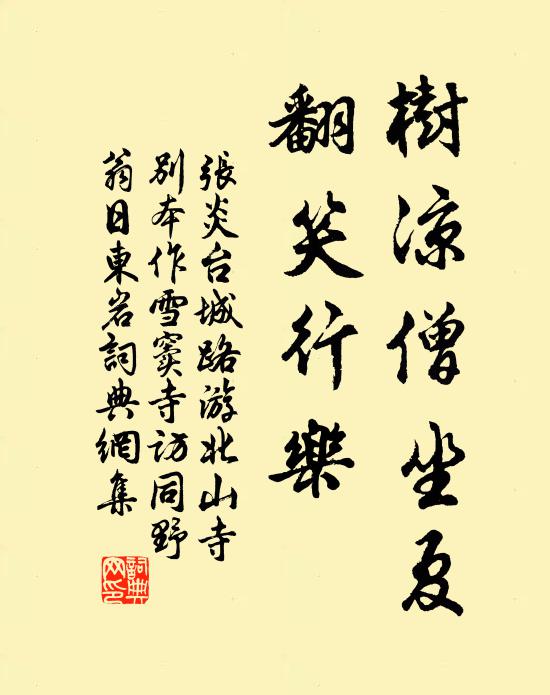 樹涼僧坐夏
翻笑行樂
張炎台城路游北山寺
別本作雪竇寺访同野
翁日東岩詞典網集
詞典網印